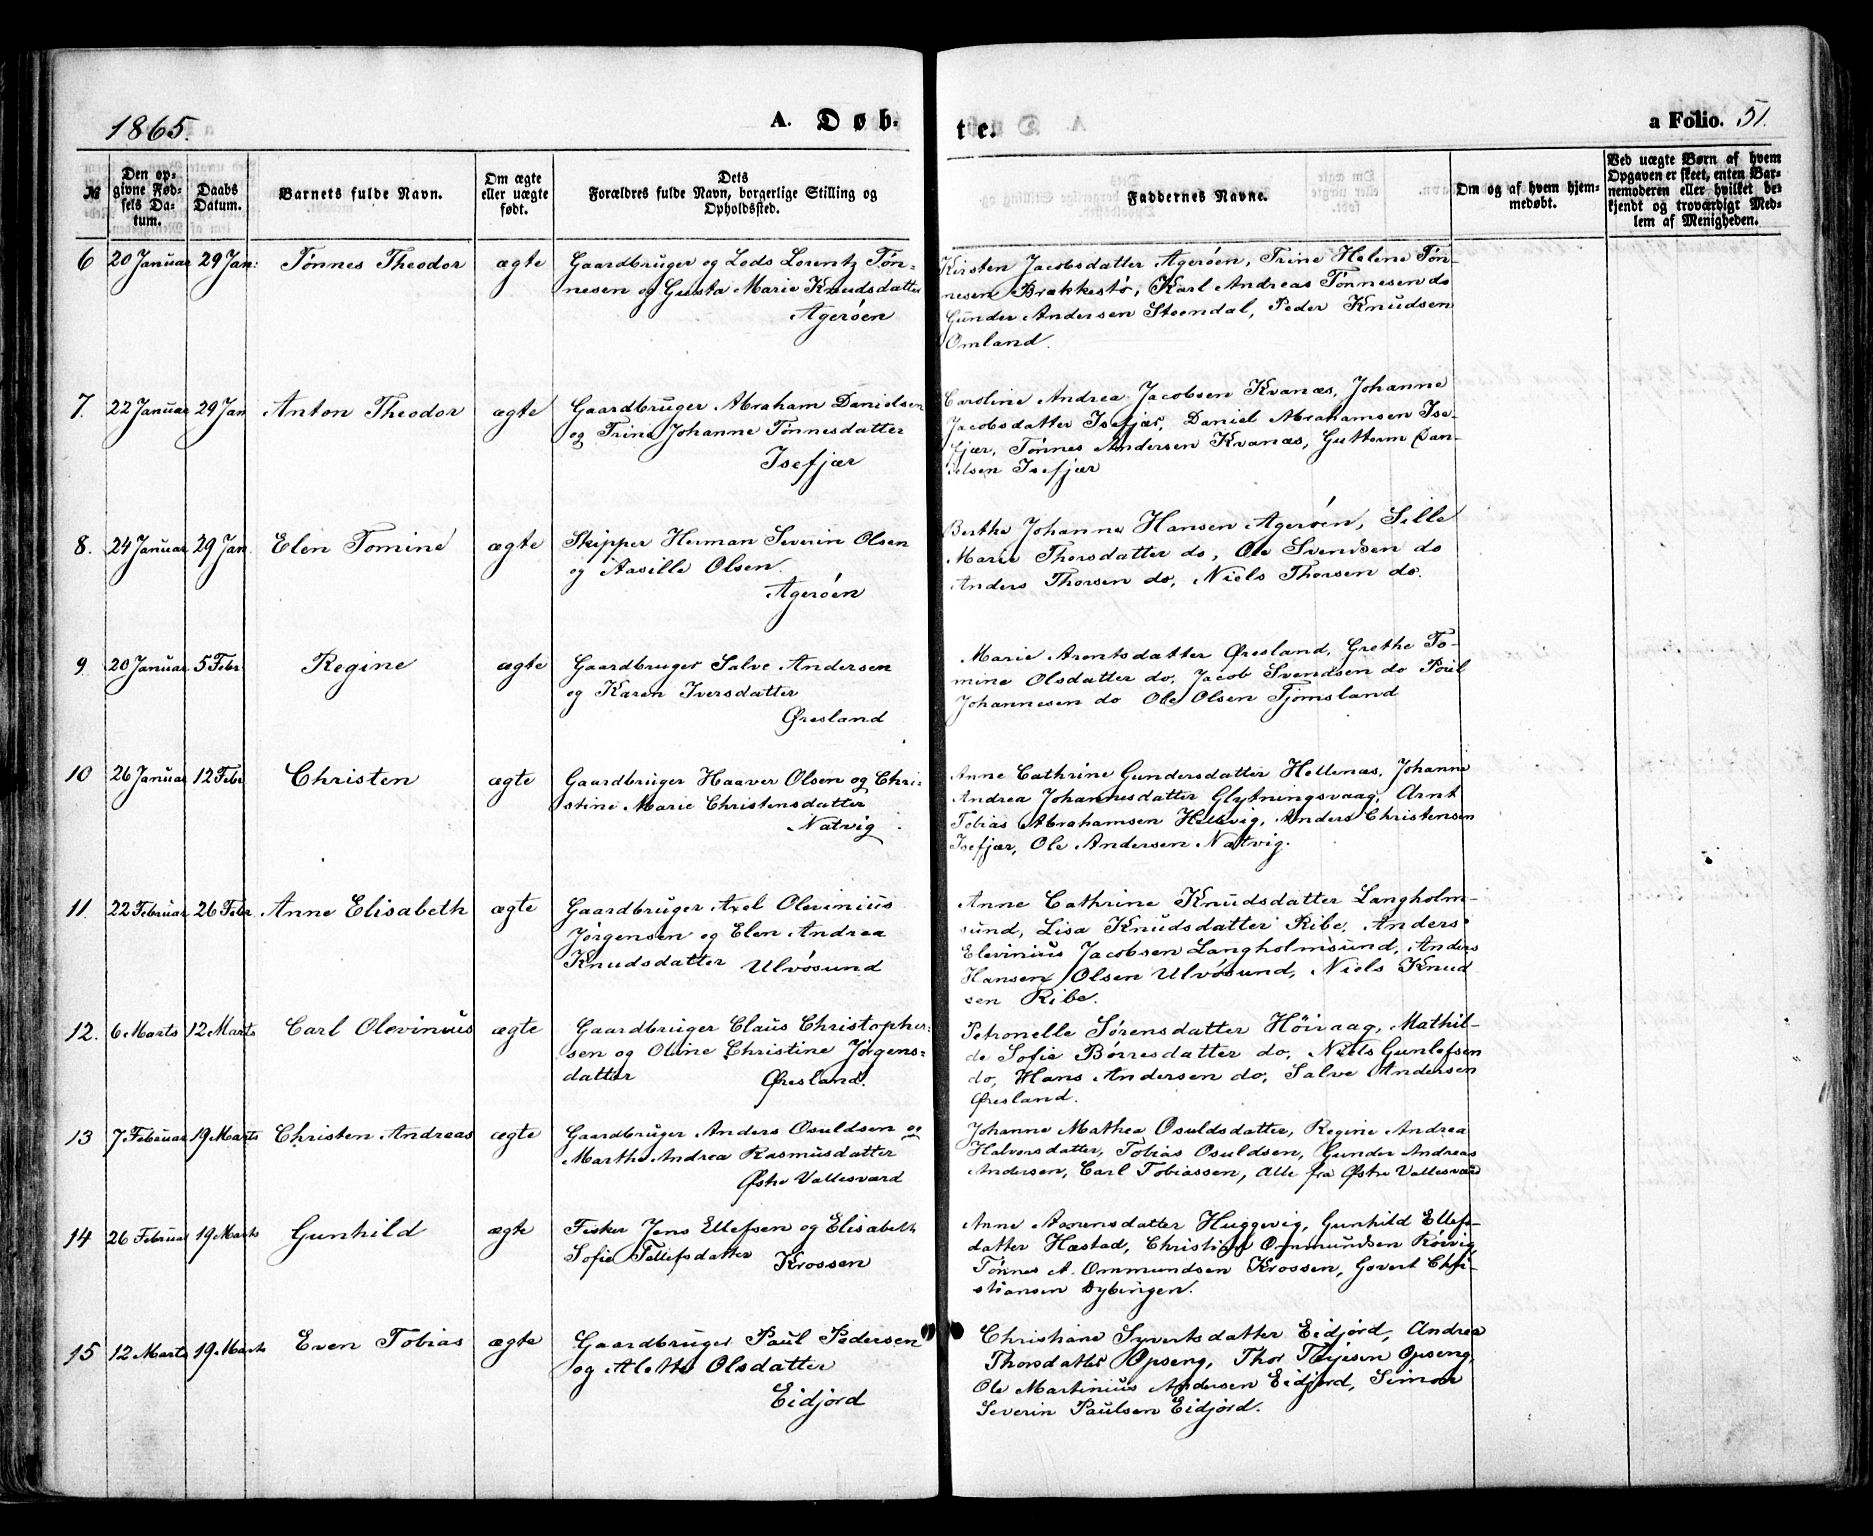 1865.
A. Døb-
te.
a Folio. 51.
№
Den op-
givne Fød-
sels Da-
tum.
Daabs
Datum.
Barnets fulde Navn.
Om ægte
eller uægte
født.
Dets
Forældres fulde Navn, borgerlige Stilling og
Opholdssted.
Faddernes Navne.
Om og af hvem hjem-
medøbt.
Ved uægte Børn af hvem
Opgaven er skeet, enten Bar-
nemoderen eller hvilket be-
kjendt og troværdigt Med-
lem af Menigheden.
6 20 Januar 29 Jan: Tønnes Theodor ægte
Gaardbruger og Lods Lorentz Tøn-
nesen og Gusta Marie Knudsdatter
Agerøen
Kirsten Jacobsdatter Agerøen, Trine Helene Tøn-
nesen Brækkestø, Karl Andreas Tønnesen do
Gunder Andersen Steendal, Peder Knudsen
Omland.
7. 22 Januar 29 Jan Anton Theodor ægte
Gaardbruger Abraham Danielsen
og Trine Johanne Tønnesdatter
Isefjær
Caroline Andrea Jacobsen Kvanæs, Johanne
Jacobsdatter Isefjær, Daniel Abrahamsen Ise-
fjær, Tønnes Andersen Kvanæs, Guttorm Dan-
ielsen Isefjær
8. 24 Januar 29 Jan. Elen Tomine ægte
Skipper Herman Severin Olsen
og Aasille Olsen.
Agerøen
Berthe Johanne Hansen Agerøen, Sille
Marie Thorsdatter do, Ole Svendsen do
Anders Thorsen do, Niels Thorsen do.
9 20 Januar 5 Febr Regine ægte
Gaardbruger Salve Andersen
og Karen Iversdatter
Øresland
Marie Arentsdatter Øresland, Grethe To-
mine Olsdatter do, Jacob Svendsen do Poul
Johannesen do Ole Olsen Tjomsland
10 26 Januar 12 Febr Christen ægte
Gaardbruger Haaver Olsen og Chri-
stine Marie Christensdatter
Natvig
Anne Cathrine Gundersdatter Hellenæs, Johanne
Andrea Johannesdatter Glytningsvaag, Arnt
Tobias Abrahamsen Hellevig, Anders Christensen
Isefjær, Ole Andersen Natvig.
11. 22 Februar 26 Febr. Anne Elisabeth ægte
Gaardbruger Axel Olevinius
Jørgensen og Elen Andrea
Knudsdatter Ulvøsund
Anne Cathrine Knudsdatter Langholm-
sund, Lisa Knudsdatter Ribe, Anders
Elevinius Jacobsen Langholmsund, Anders
Hansen Olsen Ulvøsund, Niels Knud
sen Ribe.
12. 6 Marts 12 Marts Carl Olevinius ægte
Gaardbruger Claus Christopher-
sen og Oline Christine Jørgens-
datter Øresland.
Petronelle Sørensdatter Høivaag, Mathil-
de Sofie Børresdatter do, Niels Gunlefsen
do, Hans Andersen do, Salve Andersen
Øresland.
13 7 Februar 19 Marts Christen Andreas ægte
Gaardbruger Anders Osuldsen og
Marthe Andrea Rasmusdatter
Østre Vallesværd
Johanne Mathea Osuldsdatter, Regine Andrea
Halvorsdatter, Tobias Osuldsen, Gunder Andreas
Andersen, Carl Tobiassen, Alle fra Østre Vallesværd
14 26 Februar 19 Marts Gunhild ægte
Fisker Jens Ellefsen og Elisabeth
Sofie Tellefsdatter Krossen
Anne Aanensdatter Huggevig, Gunhild Ellefs-
datter Hæstad, Christian Ommundsen Røivig
Tønnes A. Ommundsen Krossen, Govert Chri-
stiansen Dybingen.
15 12 Marts 19 Marts Even Tobias ægte
Gaardbruger Paul Pedersen
og Alette Olsdatter
Eidjord
Christiane Syvertsdatter Eidjord, Andrea
Thorsdatter Opseng, Thor Terjesen Opseng,
Ole Martinius Andersen Eidjord, Simon
Severin Paulsen Eidjord.